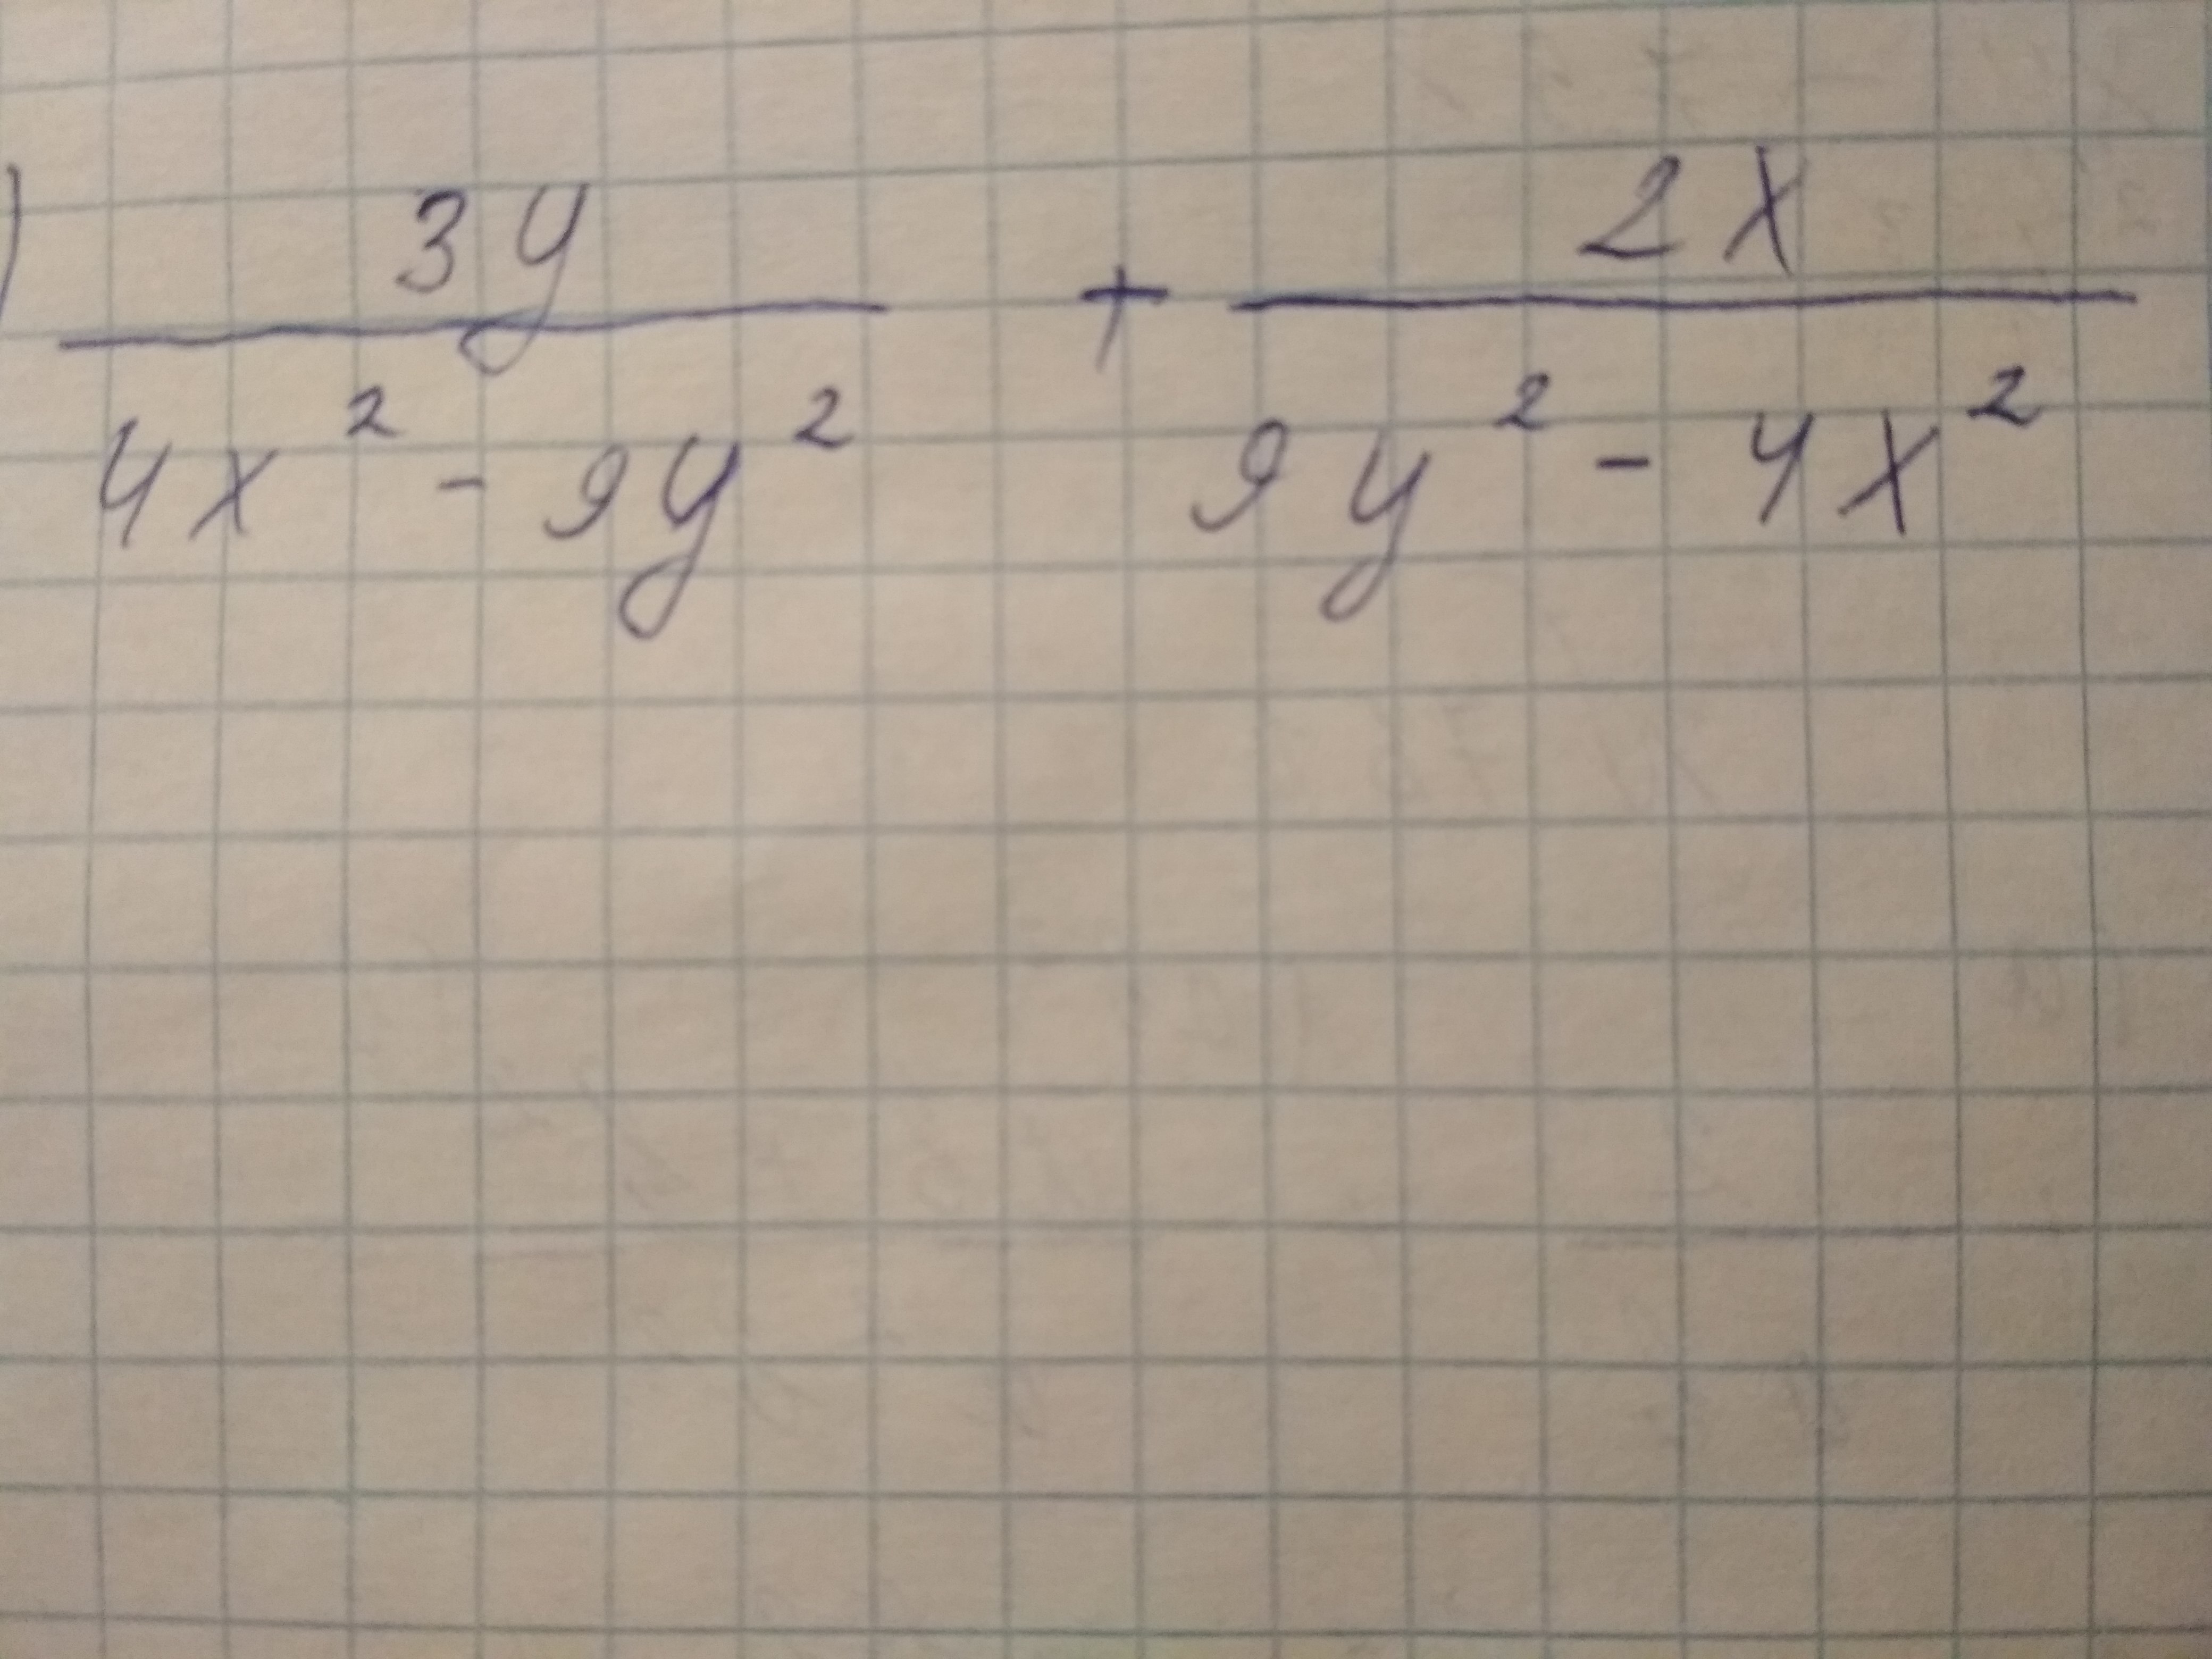 ) 3y/(4x² - 9y²) + 2x/(9y² - 4x²)